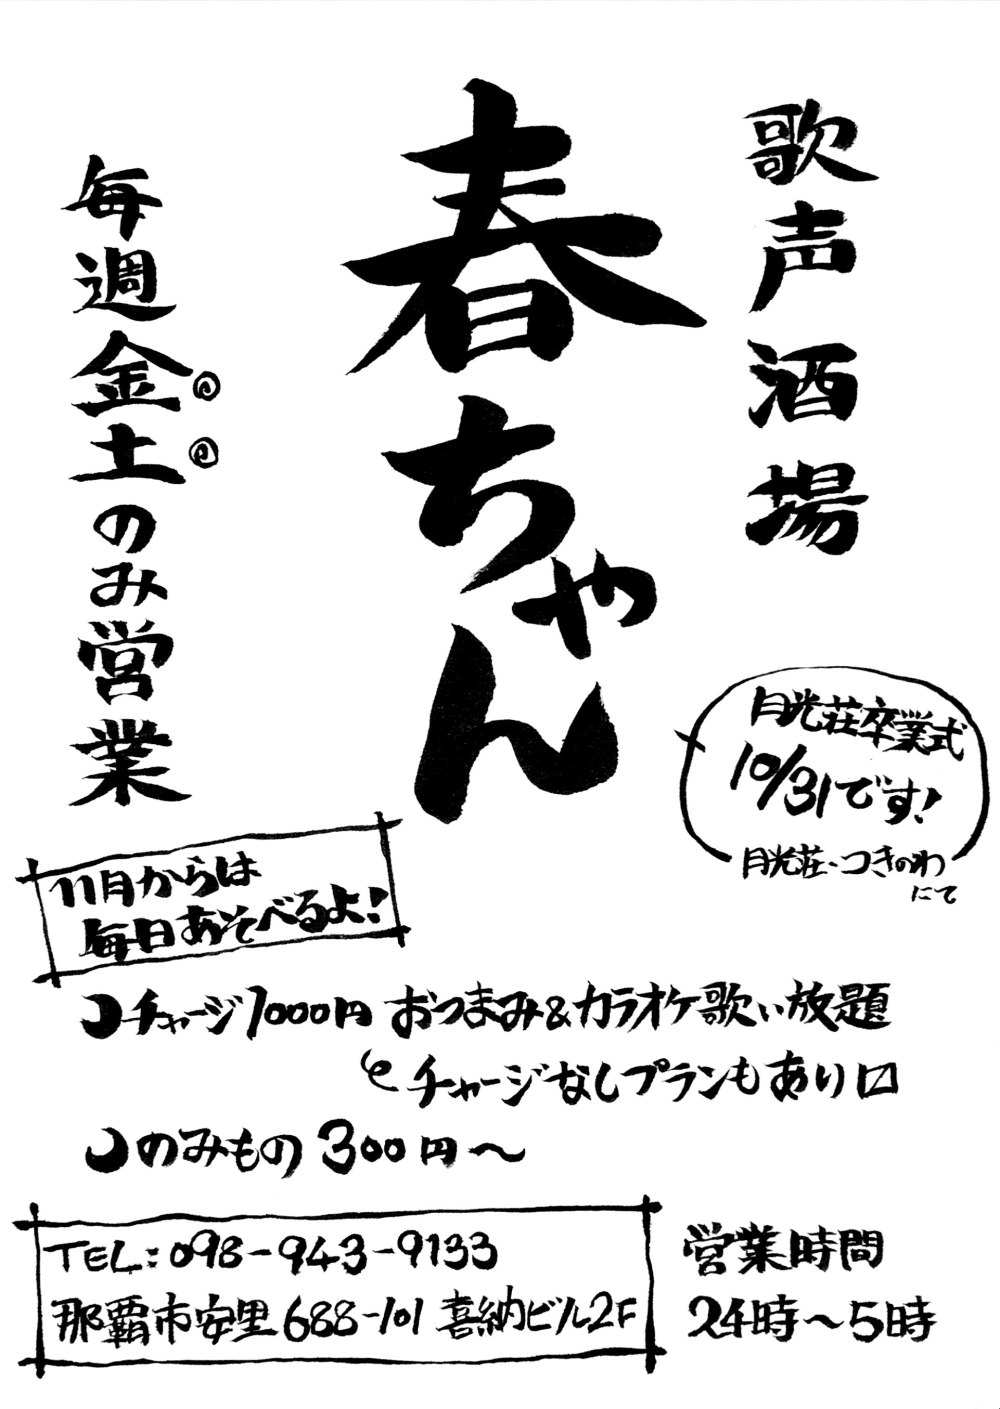 歌声酒場
春ちゃん
毎週金土のみ営業
月光荘卒業式
10/31です!
月光荘・つきのわ
にて
11月からは
毎日あそべるよ!
チャージ1000円 おつまみ&カラオケ歌い放題
チャージなしプランもあり〼
のみもの 300円〜
TEL:098-943-9133
那覇市安里688-101 喜納ビル2F
営業時間
24時〜5時